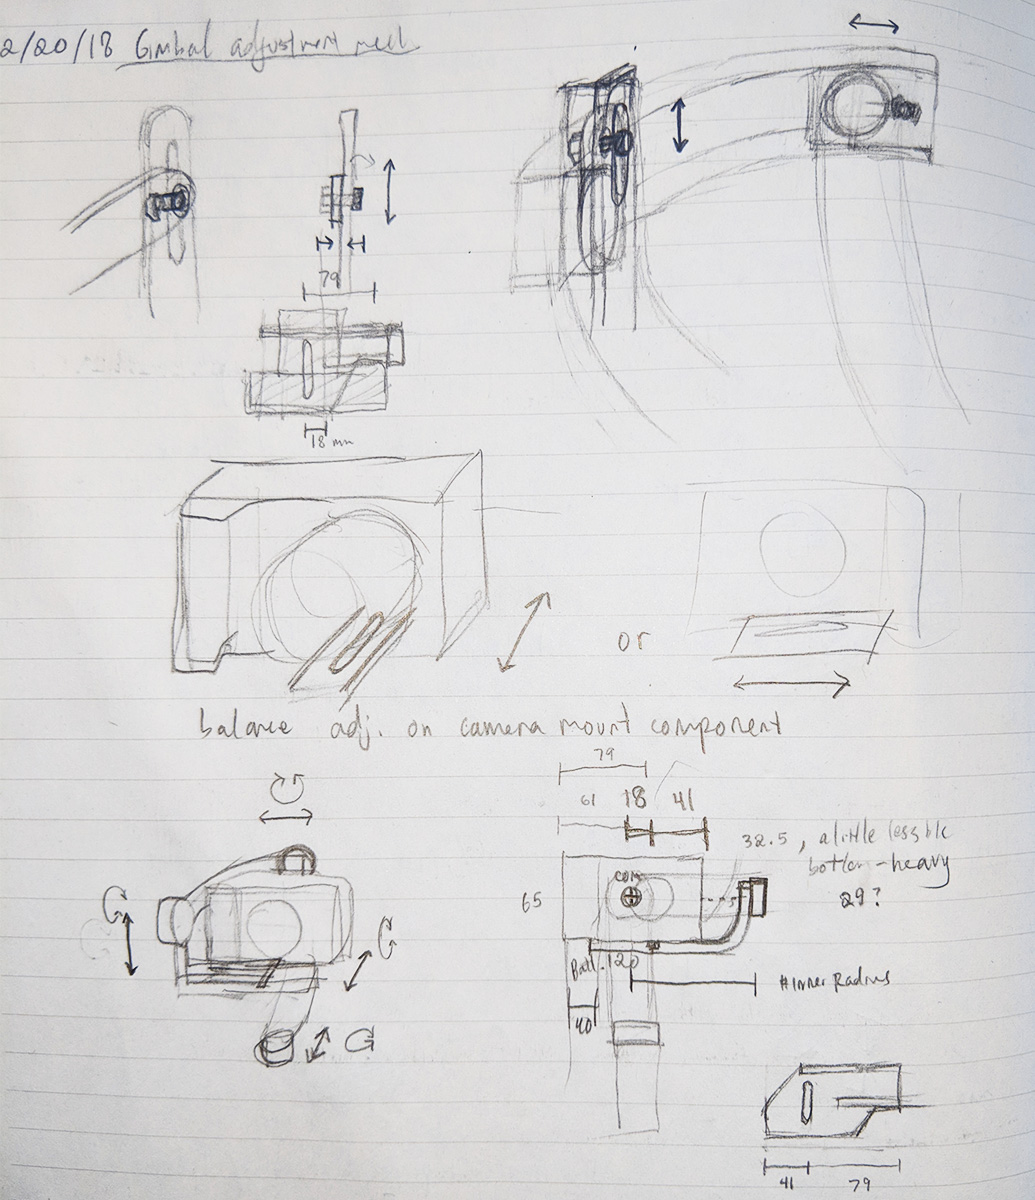 2/20/18 Gimbal adjustment mech
79
18 mm
or
balance adj. on camera mount component
79
61 18 41
32.5, a little less b/c
bottom-heavy
29?
COM
65
Batt. 120
#Inner Radius
40
41 79